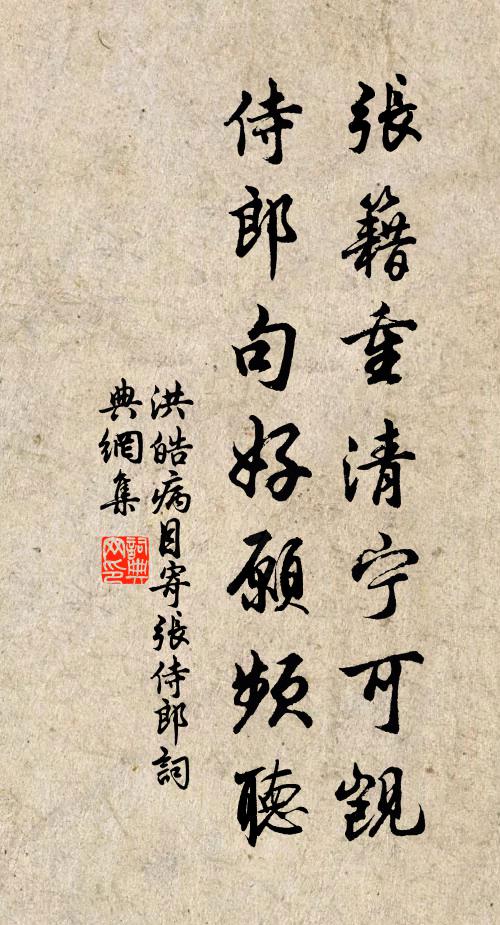 張籍重清宁可覬
侍郎句好願頻聽
洪皓病目寄張侍郎詞
典網集
詞典网印